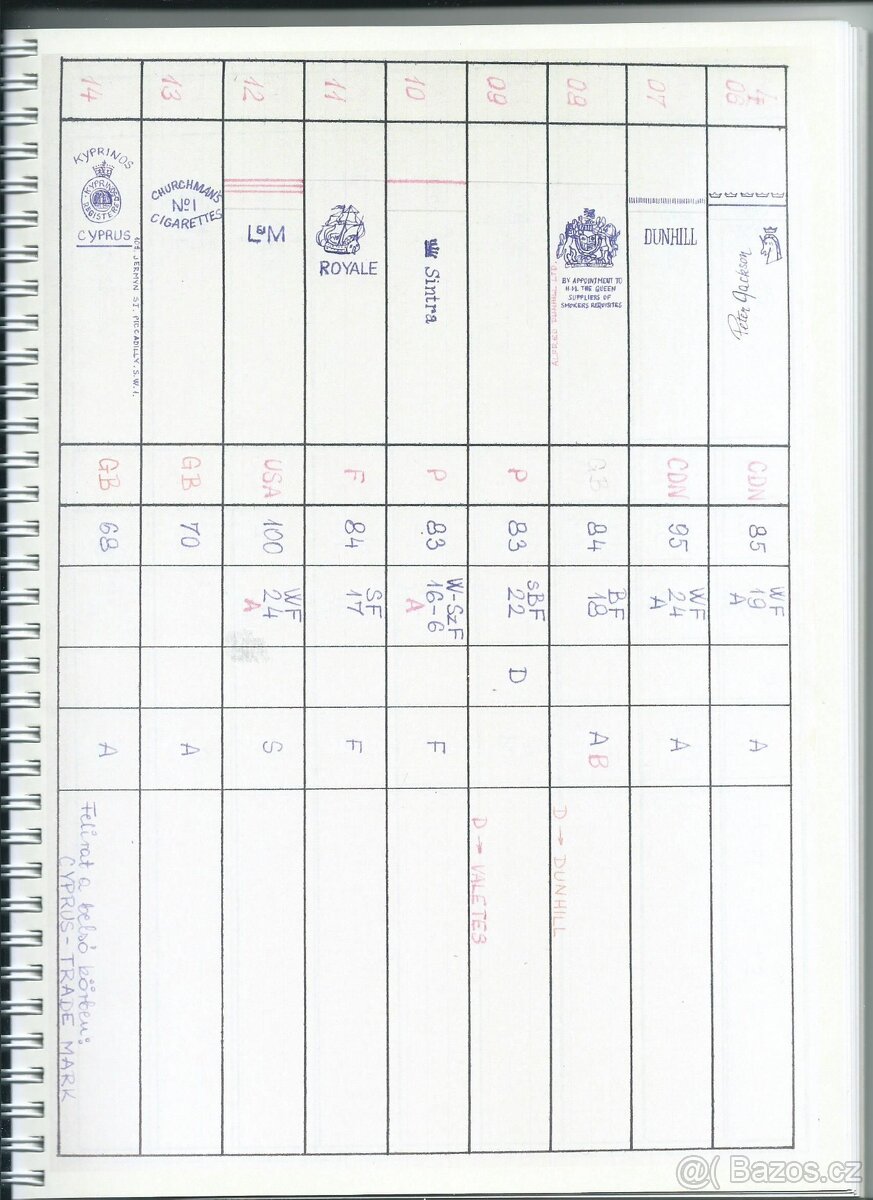 06
Peter Jackson
CDN
85
WF
19
A
A
07
DUNHILL
CDN
95
WF
24
A
A
08
BY APPOINTMENT TO
H.M. THE QUEEN
SUPPLIERS OF
SMOKERS REQUISITES
ALFRED DUNHILL LTD.
GB
84
BF
18
A B
D → DUNHILL
09
P
83
SBF
22
D
D → VALETES
10
Sintra
P
83
W-SzF
16-6
A
F
11
ROYALE
F
84
SF
17
F
12
L&M
USA
100
WF
24
A
S
13
CHURCHMAN'S
No1
CIGARETTES
GB
70
A
14
KYPRINOS
KYPRINOS
REGISTERED
CYPRUS
404 JERMYN ST. PICCADILLY. S.W.1.
GB
68
A
Felirat a belső körben:
CYPRUS - TRADE MARK
@( Bazos.cz